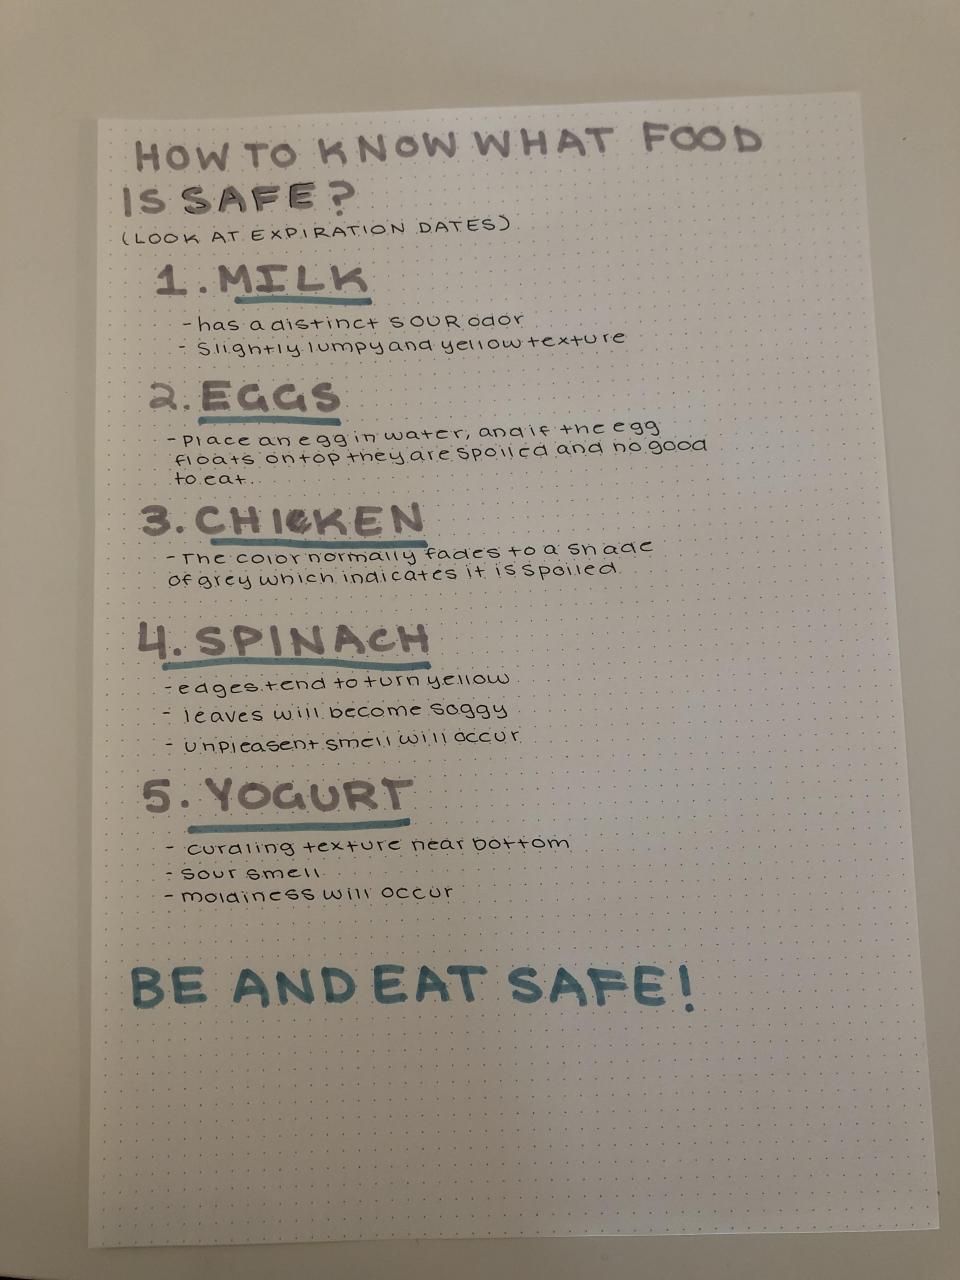 HOW TO KNOW WHAT FOOD
IS SAFE?
(LOOK AT EXPIRATION DATES)
1. MILK
- has a distinct SOUR odor
- Slightly lumpy and yellow texture
2. EGGS
- Place an egg in water, and if the egg
floats on top they are spoiled and no good
to eat.
3. CHICKEN
- The color normally fades to a shade
of grey which indicates it is spoiled.
4. SPINACH
- edges tend to turn yellow
- leaves will become soggy
- unpleasent smell will occur
5. YOGURT
- curdling texture near bottom
- sour smell
- moldiness will occur
BE AND EAT SAFE!